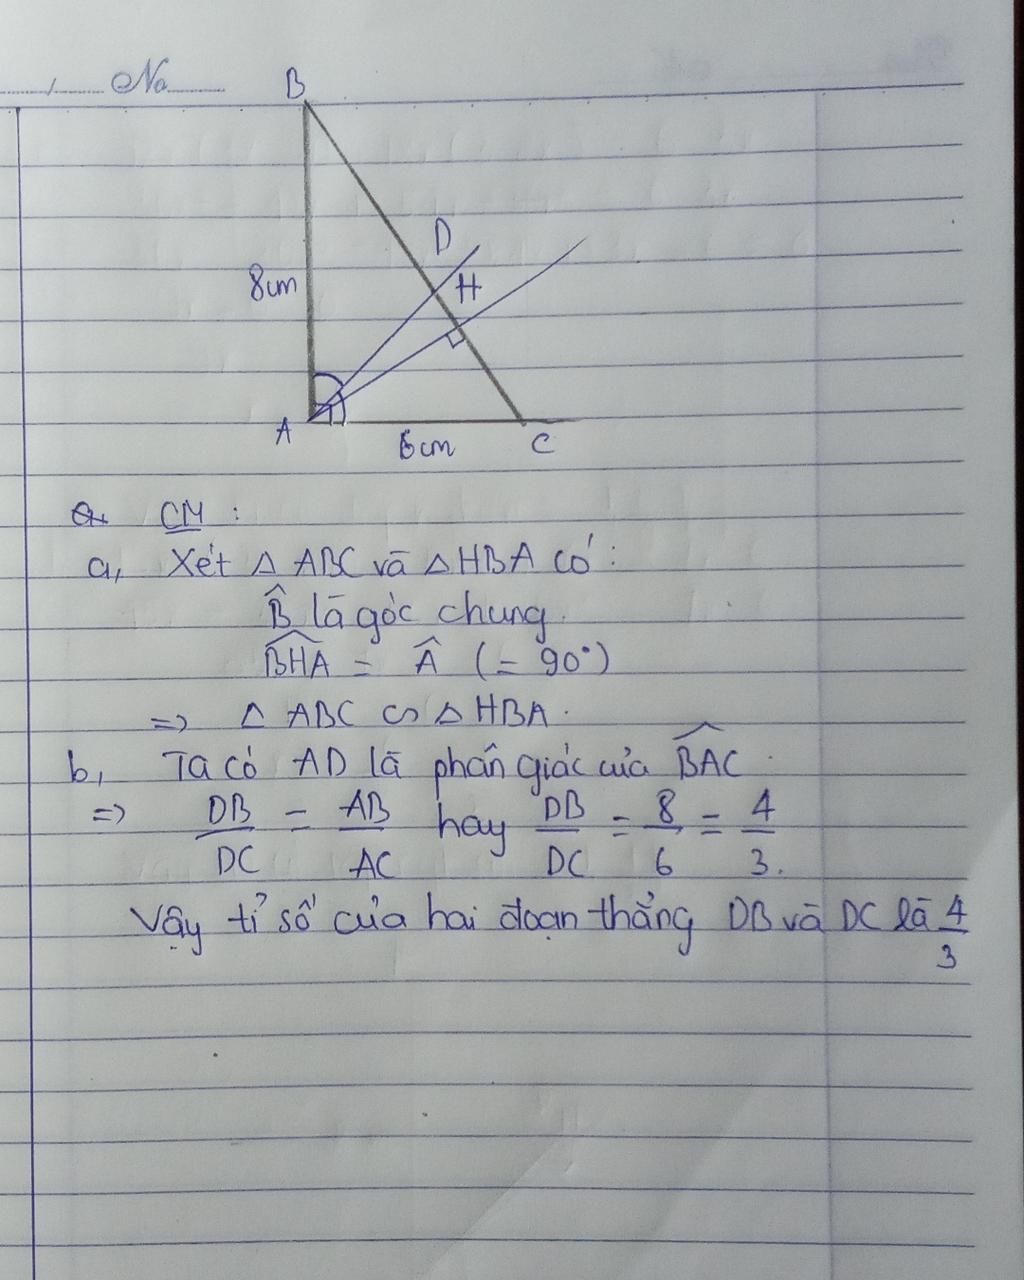 No
B
D
8cm
H
A
6cm
C
CM :
a, Xét △ ABC và △ HBA có :
B̂ là góc chung.
\widehat{BHA} = Â (= 90°)
=> △ ABC ∽ △ HBA.
b, Ta có AD là phân giác của \widehat{BAC}.
=> DB/DC = AB/AC hay DB/DC = 8/6 = 4/3.
Vậy tỉ số của hai đoạn thẳng DB và DC là 4/3